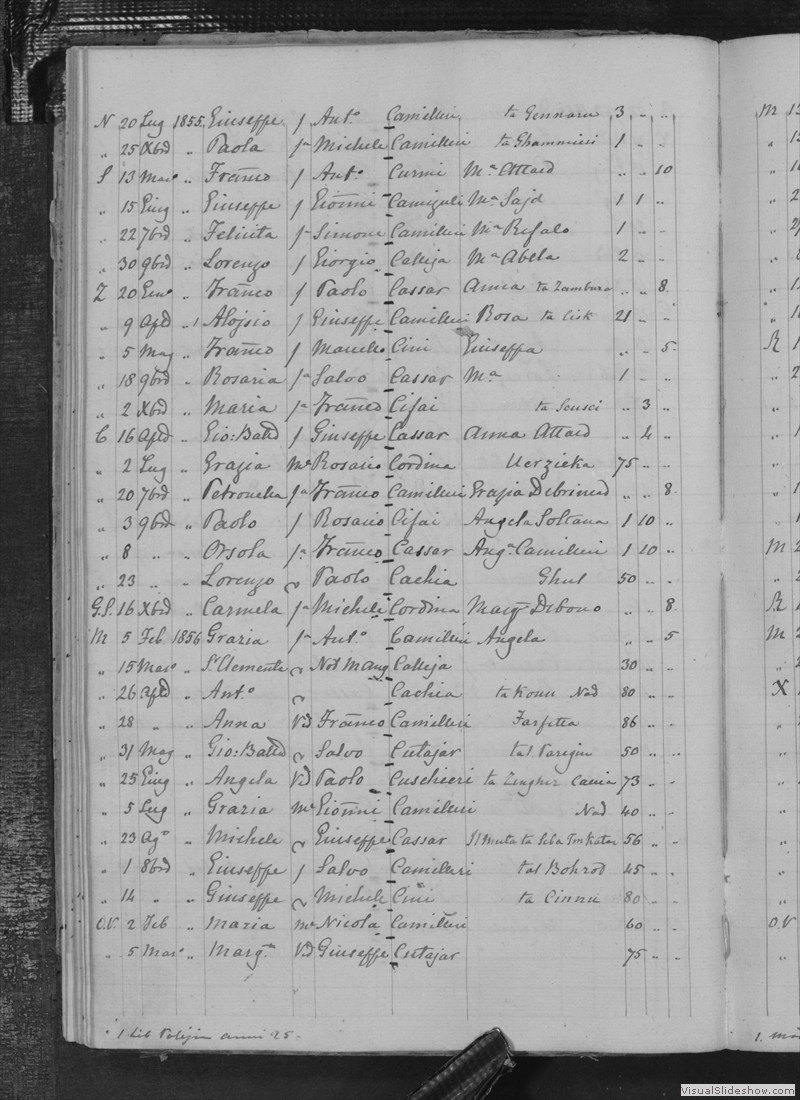 N 20 Lug 1855 Giuseppe f Ant.o Camilleri ta Gennaru 3 .. ..
„ 25 Xbrē „ Paola f.a Michele Camilleri ta Ghammieri 1 .. ..
S 13 Mar.o „ Franco f Ant.o Curmi M.a Attard .. .. 10
„ 15 Giug „ Giuseppe f Gionni M.a Sajd 1 1 ..
„ 22 7brē „ Felicita f.a Simone Camilleri M.a Refalo 1 .. ..
„ 30 9brē „ Lorenzo f Giorgio Calleja M.a Abela 2 .. ..
Z 20 Gen.o „ Franco f Paolo Cassar Anna ta Zambura .. .. 8
„ 9 Aplē „ Alojsio f Giuseppe Camilleri Rosa ta Cisk 21 .. ..
„ 5 Mag „ Franco f Cini Giuseppa .. .. 5
„ 18 9brē „ Rosaria f.a Salvo Cassar M.a 1 .. ..
„ 2 Xbrē „ Maria f.a Franco Cifai ta Scusci .. 3 ..
C 16 Aplē „ Gio: Battā f Giuseppe Cassar Anna Attard .. 4 ..
„ 2 Lug „ Grazia m.e Rosario Cordina Uerzieka 75 .. ..
„ 20 7brē „ Petronella f.a Franco Camilleri Grazia Debrincad .. .. 8
„ 3 9brē „ Paolo f Rosario Cifai Angela Soltana 1 10 ..
„ 8 „ „ Orsola f.a Franco Cassar Ang.a Camilleri 1 10 ..
„ 23 „ „ Lorenzo Paolo Cachia Ghul 50 .. ..
G.S. 16 Xbrē „ Carmela f.a Michele Cordina Marg.a Debono .. .. 8
M 5 Feb 1856 Grazia f.a Ant.o Camilleri Angela .. .. 5
„ 15 Mar.o „ S. Clemente Not Calleja 30 .. ..
„ 26 Aplē „ Ant.o Cachia ta Konu Nad 80 .. ..
„ 28 „ „ Anna Vd Franco Camilleri Farfetta 86 .. ..
„ 31 Mag „ Gio: Battā Salvo Cutajar 50 .. ..
„ 25 Giug „ Angela Vd Paolo Cuschieri ta Zengher 73 .. ..
„ 5 Lug „ Grazia m.e Gionni Camilleri Nad 40 .. ..
„ 23 Ag.o „ Michele Giuseppe Cassar 56 .. ..
„ 1 8brē „ Giuseppe f Salvo Camilleri tal Bohrod 45 .. ..
„ 14 „ „ Giuseppe Michele Cini ta Cinnu 80 .. ..
O.V. 2 Feb „ Maria m.e Nicola Camilleri 60 .. ..
„ 5 Mar.o „ Marg.ta Vd Giuseppe Cutajar 75 .. ..
1 Lib anni 25.
M
R
M
R
M
X
O.V
1.
VisualSlideshow.com